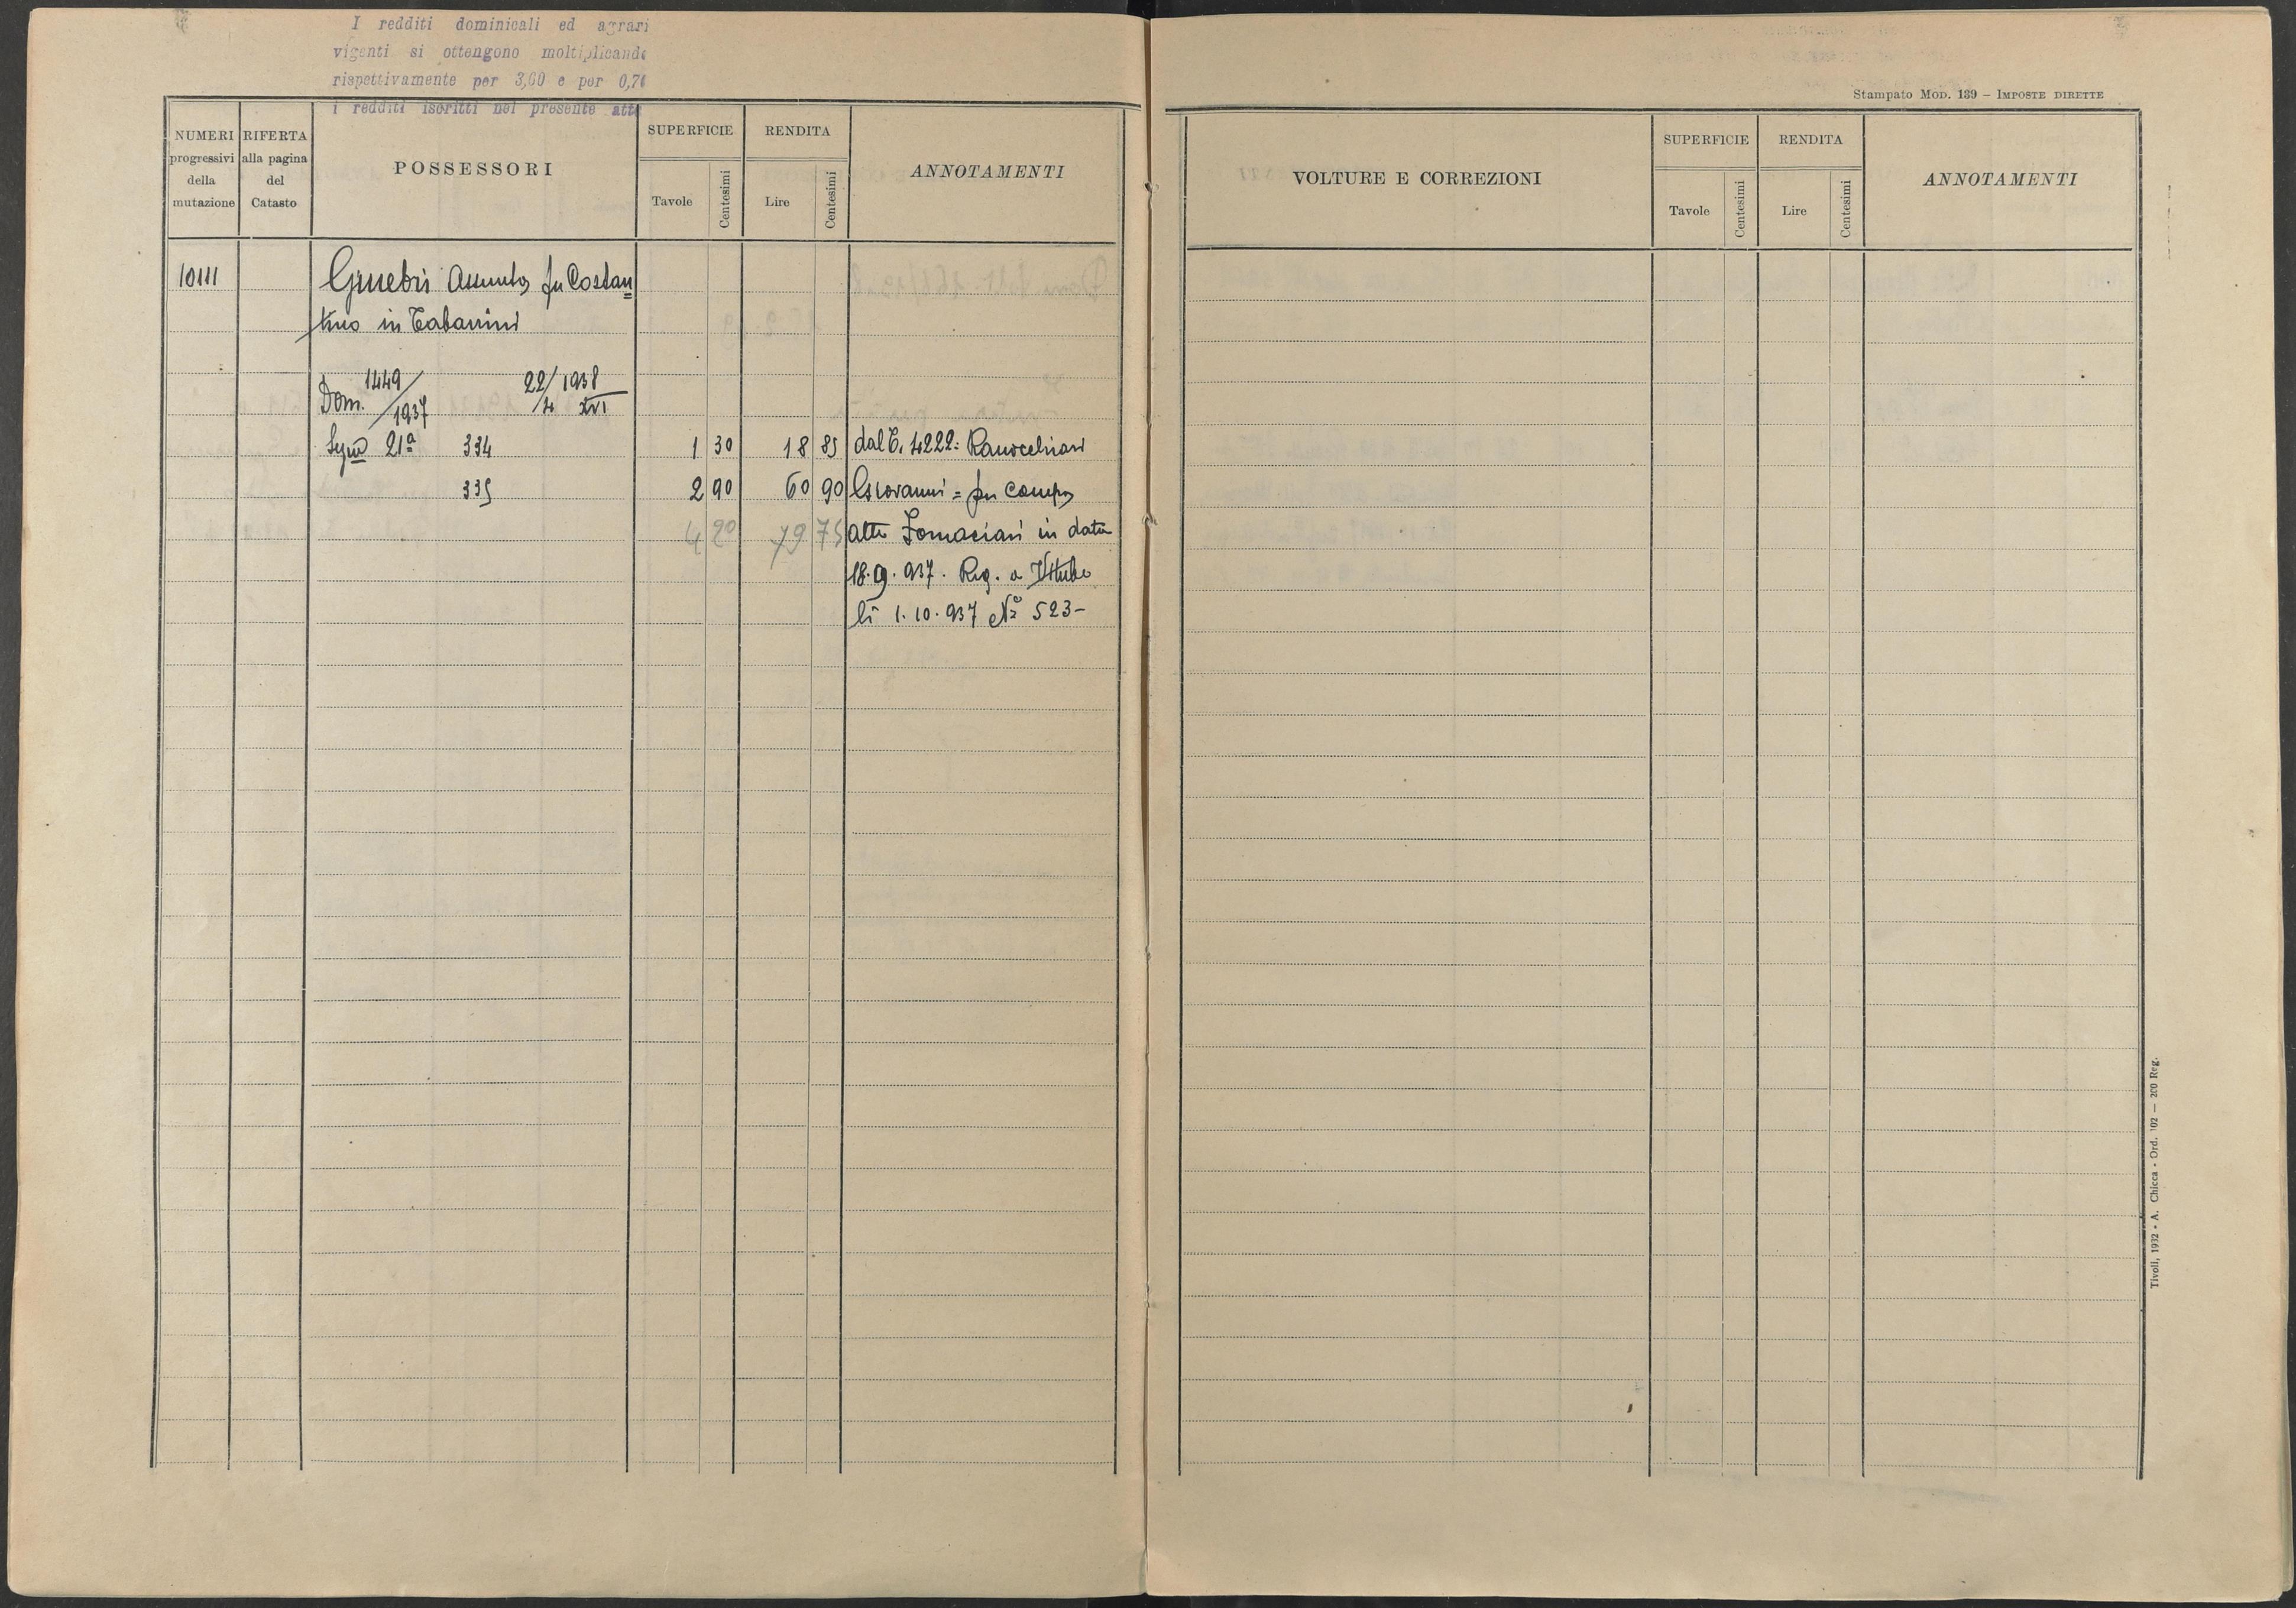 I redditi dominicali ed agrari
vigenti si ottengono moltiplicando
rispettivamente per 3,60 e per 0,70
i redditi iscritti nel presente atto
NUMERI progressivi della mutazione
RIFERTA alla pagina del Catasto
POSSESSORI
SUPERFICIE
Tavole Centesimi
RENDITA
Lire Centesimi
ANNOTAMENTI
10111 Ginebri Assunta fu Costan=
tino in Tabarrini
Dom. 1449/1937 22/4 1938 XVI
Segna 21ª 334 1 30 18 85 dal C. 4222: Ranocchiari
335 2 90 60 90 Giovanni = fu
4 20 79 75 atto Fornaciari in data
18.9.937. Reg. a Viterbo
li 1.10.937 Nº 523-
Stampato Mod. 139 – Imposte dirette
VOLTURE E CORREZIONI
SUPERFICIE
Tavole Centesimi
RENDITA
Lire Centesimi
ANNOTAMENTI
Tivoli, 1932 - A. Chicca - Ord. 102 — 200 Reg.